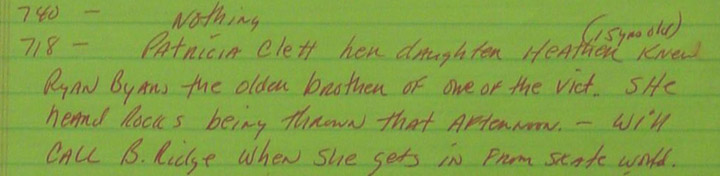 740 - Nothing
(15 yrs old)
718 - PATRICIA Clett her daughter HEATHER Knew
RYAN Byars the older brother of one of the vict.. SHe
heard Rocks being thrown that AFternoon. - Will
CALL B. Ridge when she gets in From skate world.